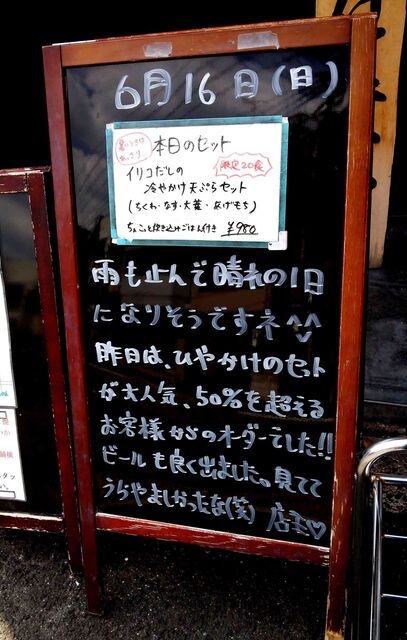 6月16日(日)
暑いときは
あっさり
本日のセット
限定20食
イリコだしの
冷やかけ天ぷらセット
(ちくわ・なす・大葉・あげもち)
ちょこっと炊き込みごはん付き ¥980
雨も止んで晴れの1日
になりそうですネ^^
昨日は、ひやかけのセット
が大人気、50%を超える
お客様からのオーダーでした!!
ビールも良く出ました。見てて
うらやましかったな(笑) 店主♡